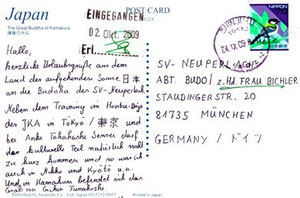 Japan
The Great Buddha of Kamakura
鎌倉の大仏
POST CARD
EINGEGANGEN
02. Okt. 2009
Erl.
NIPPON
24.IX.09
Hallo,
herzliche Urlaubsgrüße aus dem
Land der aufgehenden Sonne 日本
an die Budoka des SV-Neuperlach.
Neben dem Training im Honbu-Dojo
des JKA in Tokyo / 東京 und
bei Anka Takahashi Sensei darf
das kulturelle Teil natürlich nicht
zu kurz kommen und so war ich
auch in Nikko und Kyoto u.a.
Und in Kamakura befindet sich das
Grab von Gichin Funakoshi.
SV-NEUPERLACH
ABT. BUDO/ z.Hd. FRAU BICHLER
STAUDINGERSTR. 20
81735 MÜNCHEN
GERMANY / ドイツ
Printed in Japan